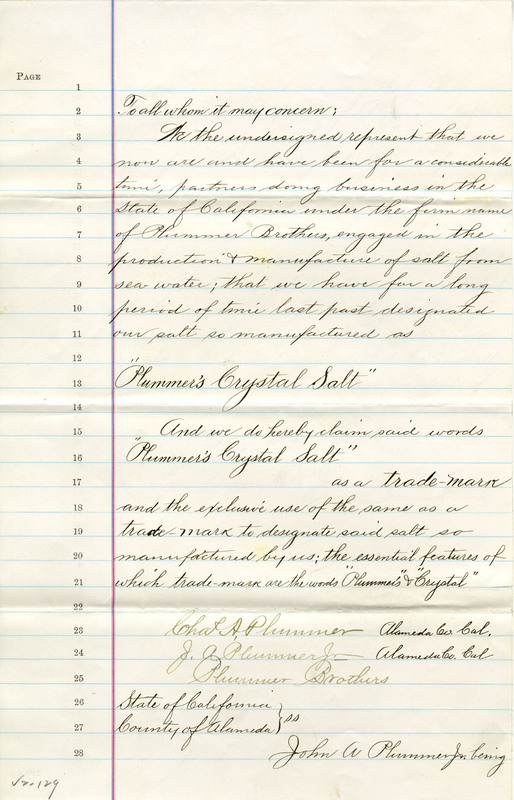 PAGE
1
2 To all whom it may concern;
3 We the undersigned represent that we
4 now are and have been for a considerable
5 time, partners doing business in the
6 State of California under the firm name
7 of Plummer Brothers, engaged in the
8 production & manufacture of salt from
9 sea water; that we have for a long
10 period of time last past designated
11 our salt so manufactured as
12
13 "Plummer's Crystal Salt"
14
15 And we do hereby claim said words
16 "Plummer's Crystal Salt"
17 as a trade-mark
18 and the exclusive use of the same as a
19 trade mark to designate said salt so
20 manufactured by us; the essential features of
21 which trade-mark are the words "Plummer's" & "Crystal"
22
23 Chas. A. Plummer Alameda Co. Cal.
24 J. A. Plummer Jr. Alameda Co. Cal
25 Plummer Brothers
26 State of California
27 County of Alameda } ss
28 John A Plummer Jr. being